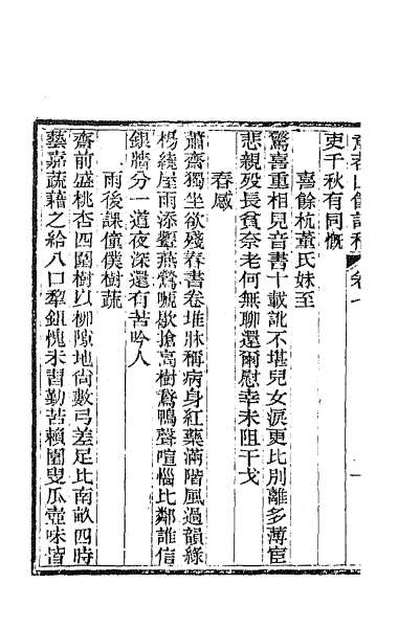 吏千秋有同慨
喜餘杭董氏妹至
驚喜重相見音書十載訛不堪兒女淚更比別離多薄宦
悲親歿長貧奈老何無聊還爾慰幸未阻干戈
春感
蕭齋獨坐欲殘春書卷堆牀稱病身紅藥滿階風過韻綠
楊繞屋雨添新燕鶯嘵歇搶高樹鵞鴨聲喧惱比鄰誰信
銀牆分一道夜深還有苦吟人
雨後課僮僕樹蔬
齋前盛桃杏四圍樹以柳隙地尙數弓差足比南畝四時
藝嘉蔬藉之給八口犂鉏愧未習勤苦賴園叟瓜壺味皆